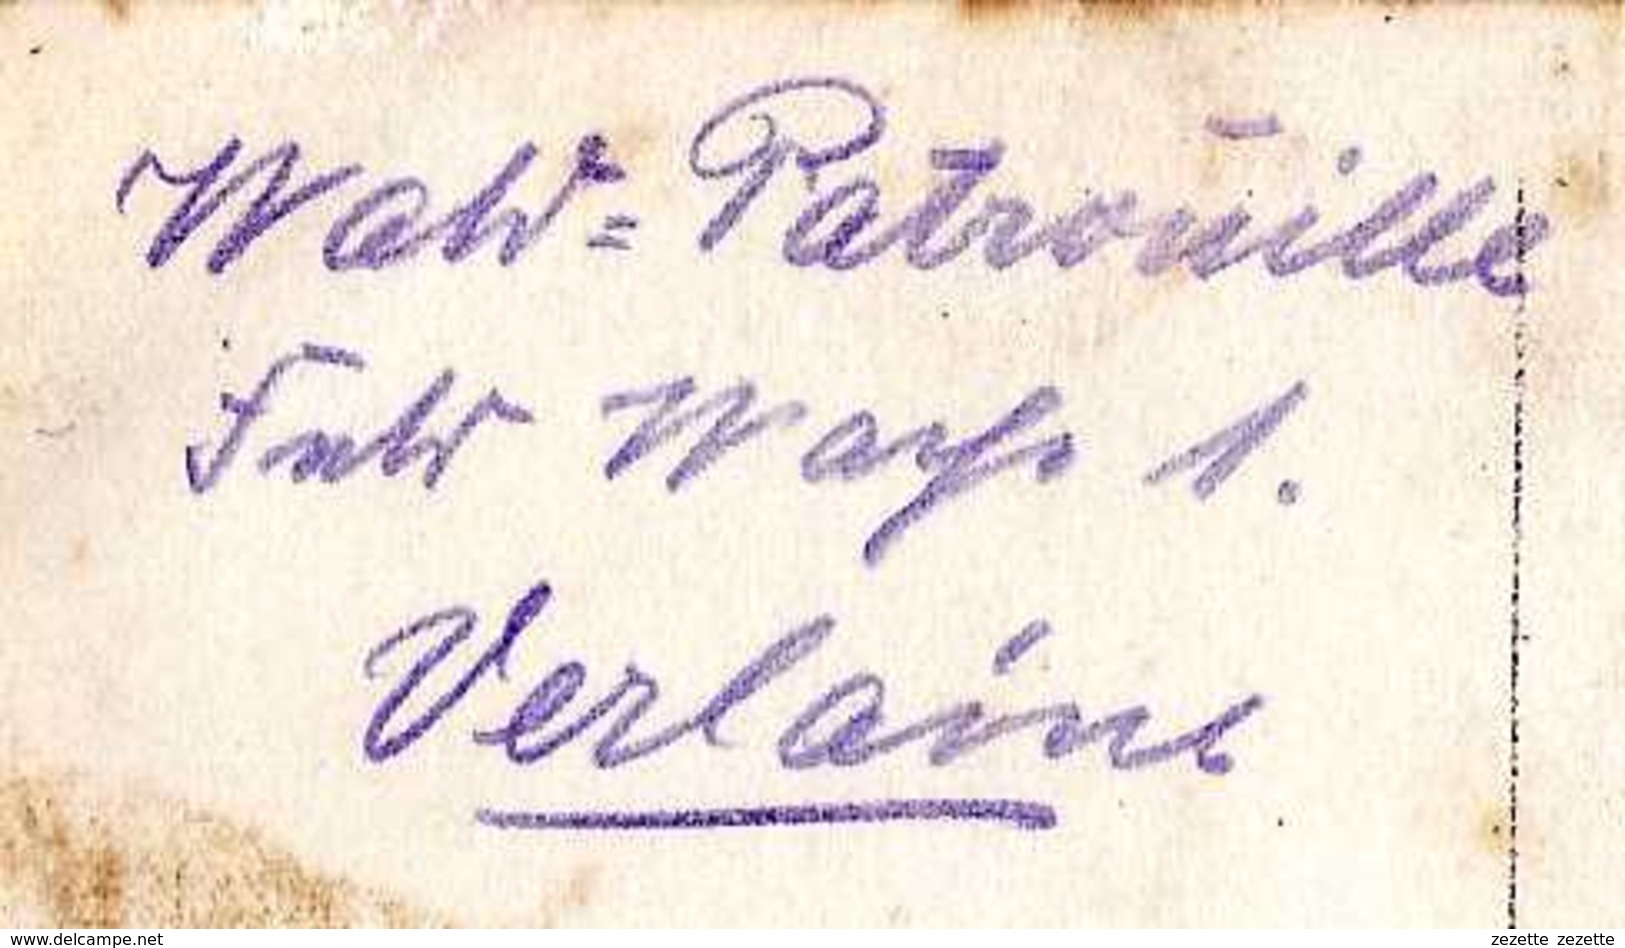 Wald=Patrouille
Feld Wache 1.
Verlaine
www.delcampe.net
zezette zezette